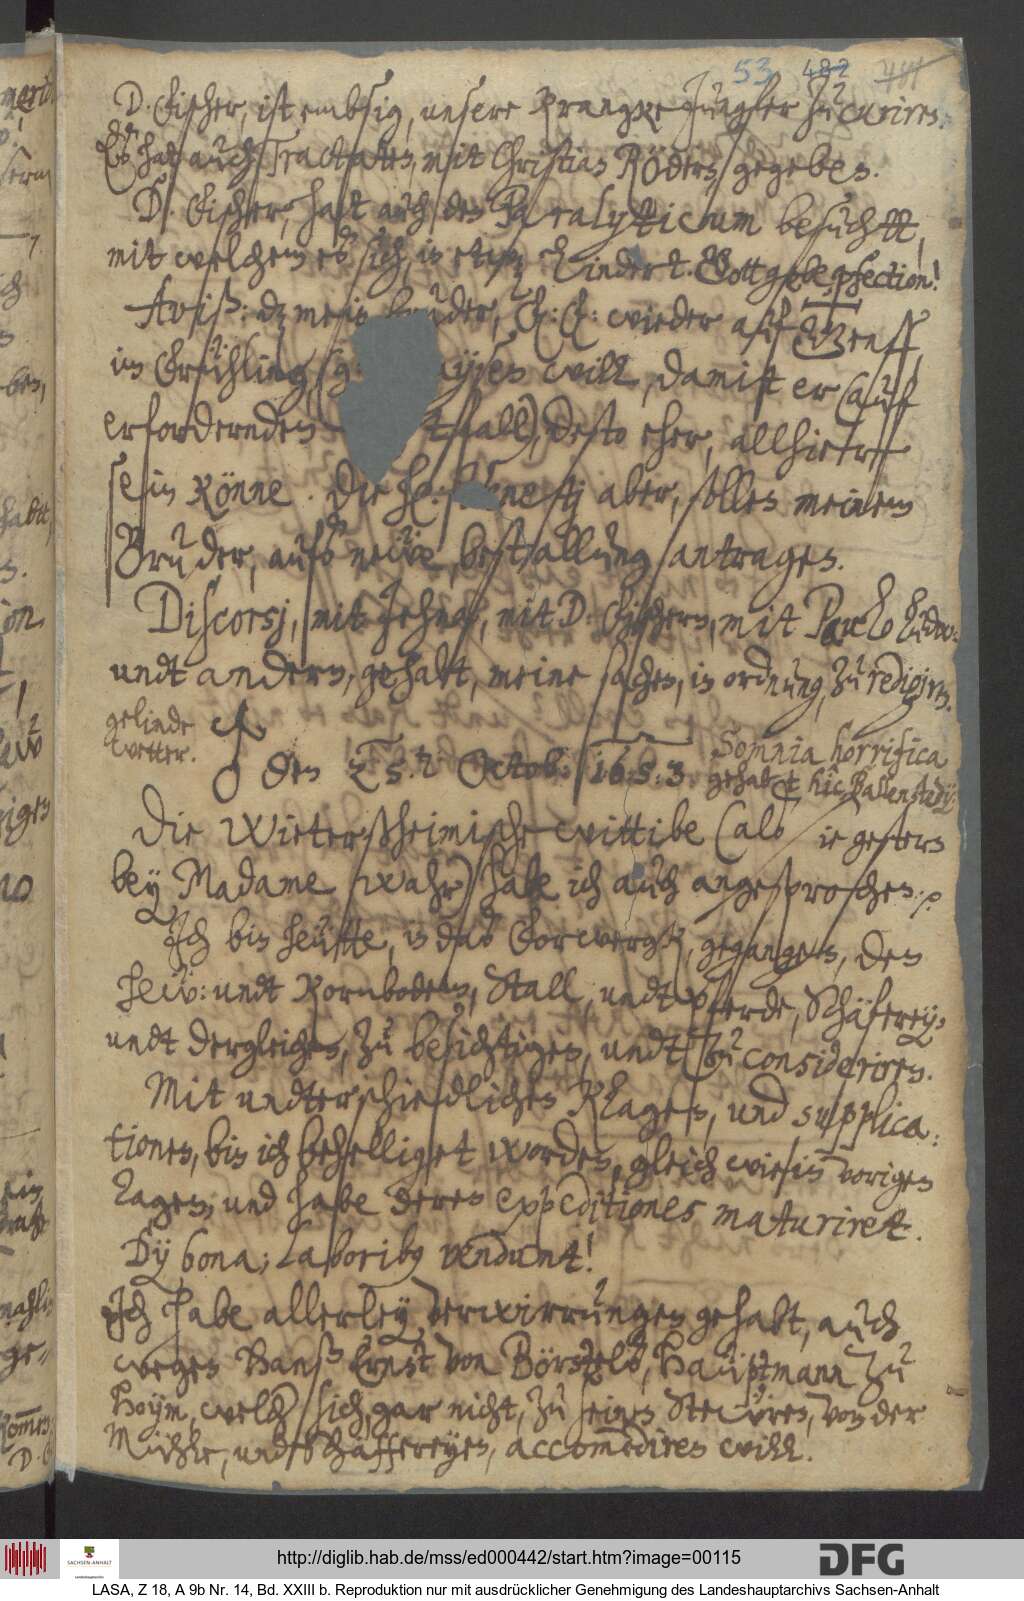 53 422
D. Fischer, ist embsig, unsere krangke Jungfer zu curiren.
Er hat auch Tractaten, mit Christian Rödern, gegeben.
D. Fischer, hat auch den Paralyticum besuchtt,
mit welchem es sich, in etw lindert. Gott gebe pfection!
Aviß: dz mein Bruder, F: F: wieder auf
im Frühling, ysen will, damitt er (auf
erfordernden tfall), desto eher, allhier
sein könne. Die aber, sollen meinem
Bruder, aufs neue, bestallung antragen.
Discorsj, mit Jehna, mit D. Fischern, mit Paulo Ludw:
undt andern, gehabt, meine sachen, in ordnung, zu redigiren.
gelinde
wetter.
♂ den 25. Octob: 1653. Somnia horrifica
gehabt hic Ballenstedij
Die Wietersheimische wittibe (als sie gestern
bey Madame wahr) habe ich auch angesprochen.
Ich bin heutte, in das Forwergk, gegangen, den
Hew: undt Kornbodem, Stall, undt pferde, Schäferey,
undt dergleichen, zu besichtigen, undt zu consideriren.
Mit undterschiedlichen Klagen, und supplica:
tionen, bin ich behelliget worden, gleich wie in vorigen
Tagen, und habe deren expeditiones maturiret.
Dij bona; Laboribus vendunt!
Ich habe allerley verwirrungen gehabt, auch
wegen Hanß Ernst von Börstels, Hauptmann zu
Hoym, welcher sich, gar nicht, zu seinen Steuren, von der
Mühle, undt Schäffereyen, accommodiren will.
http://diglib.hab.de/mss/ed000442/start.htm?image=00115
SACHSEN-ANHALT
DFG
LASA, Z 18, A 9b Nr. 14, Bd. XXIII b. Reproduktion nur mit ausdrücklicher Genehmigung des Landeshauptarchivs Sachsen-Anhalt